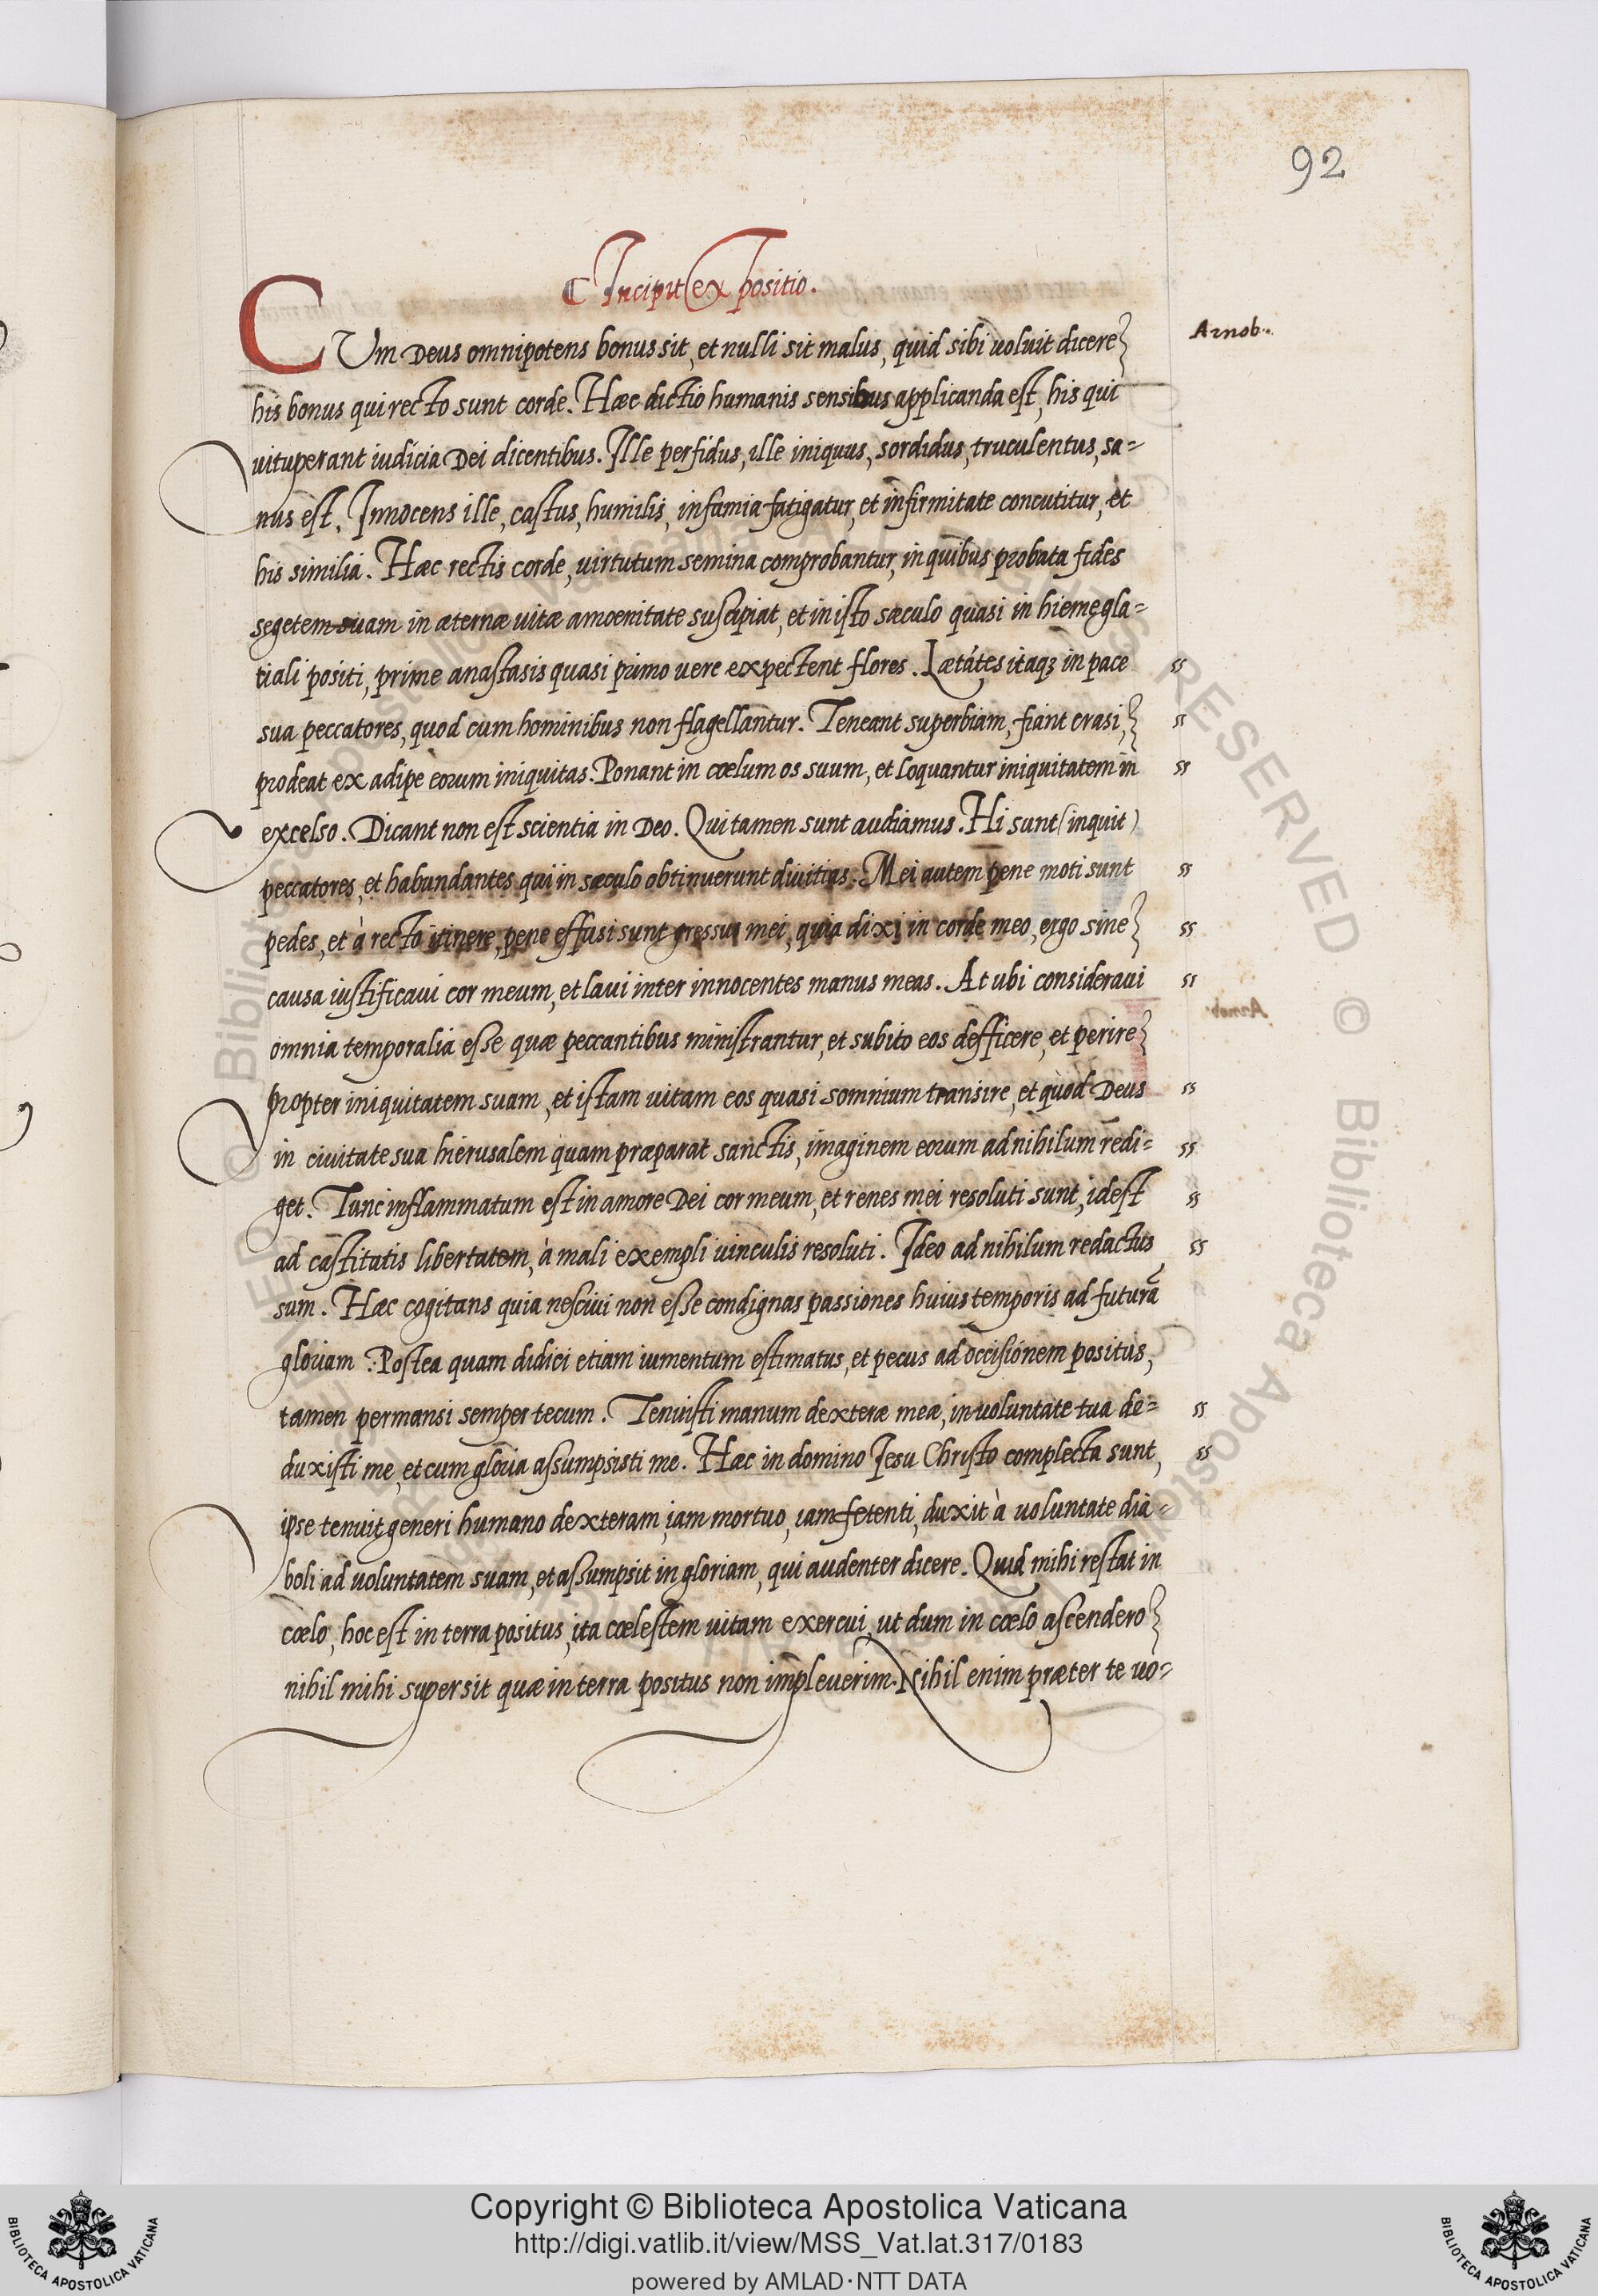 92
Incipit expositio.
Arnob.
CUm Deus omnipotens bonus sit, et nulli sit malus, quid sibi uoluit dicere
his bonus qui recto sunt corde. Hæc dictio humanis sensibus applicanda est, his qui
uituperant iudicia Dei dicentibus. Ille perfidus, ille iniquus, sordidus, truculentus, sa=
nus est. Innocens ille, castus, humilis, infamia fatigatur, et infirmitate concutitur, et
his similia. Hæc rectis corde, uirtutum semina comprobantur, in quibus probata fides
segetem suam in æternæ uitæ amœnitate suscipiat, et in isto sæculo quasi in hieme gla=
tiali positi, prime anastasis quasi primo uere expectent flores. Lætátes itaqꝫ in pace
sua peccatores, quod cum hominibus non flagellantur. Teneant superbiam, fiant crasi,
prodeat ex adipe eorum iniquitas. Ponant in cœlum os suum, et loquantur iniquitatem in
excelso. Dicant non est scientia in Deo. Qui tamen sunt audiamus. Hi sunt (inquit)
peccatores, et habundantes qui in sæculo obtinuerunt diuitias. Mei autem pene moti sunt
pedes, et à recto itinere, pene effusi sunt gressus mei, quia dixi in corde meo, ergo sine
causa iustificaui cor meum, et laui inter innocentes manus meas. At ubi consideraui
omnia temporalia esse quæ peccantibus ministrantur, et subito eos defficere, et perire
propter iniquitatem suam, et istam uitam eos quasi somnium transire, et quod Deus
in ciuitate sua hierusalem quam præparat sanctis, imaginem eorum ad nihilum redi=
get. Tunc inflammatum est in amore Dei cor meum, et renes mei resoluti sunt, idest
ad castitatis libertatem, à mali exempli uinculis resoluti. Ideo ad nihilum redactus
sum. Hæc cogitans quia nesciui non esse condignas passiones huius temporis ad futurā
gloriam. Postea quam didici etiam iumentum estimatus, et pecus ad occisionem positus,
tamen permansi semper tecum. Tenuisti manum dexteræ meæ, in uoluntate tua de=
duxisti me, et cum gloria assumpsisti me. Hæc in domino Jesu Christo complecta sunt,
ipse tenuit generi humano dexteram, iam mortuo, iam fetenti, duxit à uoluntate dia=
boli ad uoluntatem suam, et assumpsit in gloriam, qui audenter dicere. Quid mihi restat in
cœlo, hoc est in terra positus, ita cœlestem uitam exercui, ut dum in cœlo ascendero
nihil mihi supersit quæ in terra positus non impleuerim. Nihil enim præter te uo=
Copyright © Biblioteca Apostolica Vaticana
http://digi.vatlib.it/view/MSS_Vat.lat.317/0183
powered by AMLAD·NTT DATA
BIBLIOTECA APOSTOLICA VATICANA
BIBLIOTECA APOSTOLICA VATICANA